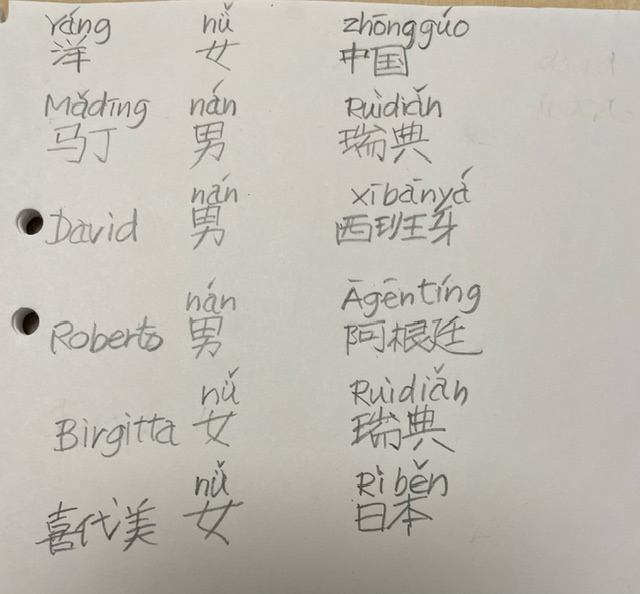 Yáng nǚ zhōngguó
洋 女 中国
Mǎdīng nán Ruìdiǎn
马丁 男 瑞典
nán xībānyá
David 男 西班牙
nán Āgēntíng
Roberto 男 阿根廷
nǚ Ruìdiǎn
Birgitta 女 瑞典
nǚ Rìběn
喜代美 女 日本